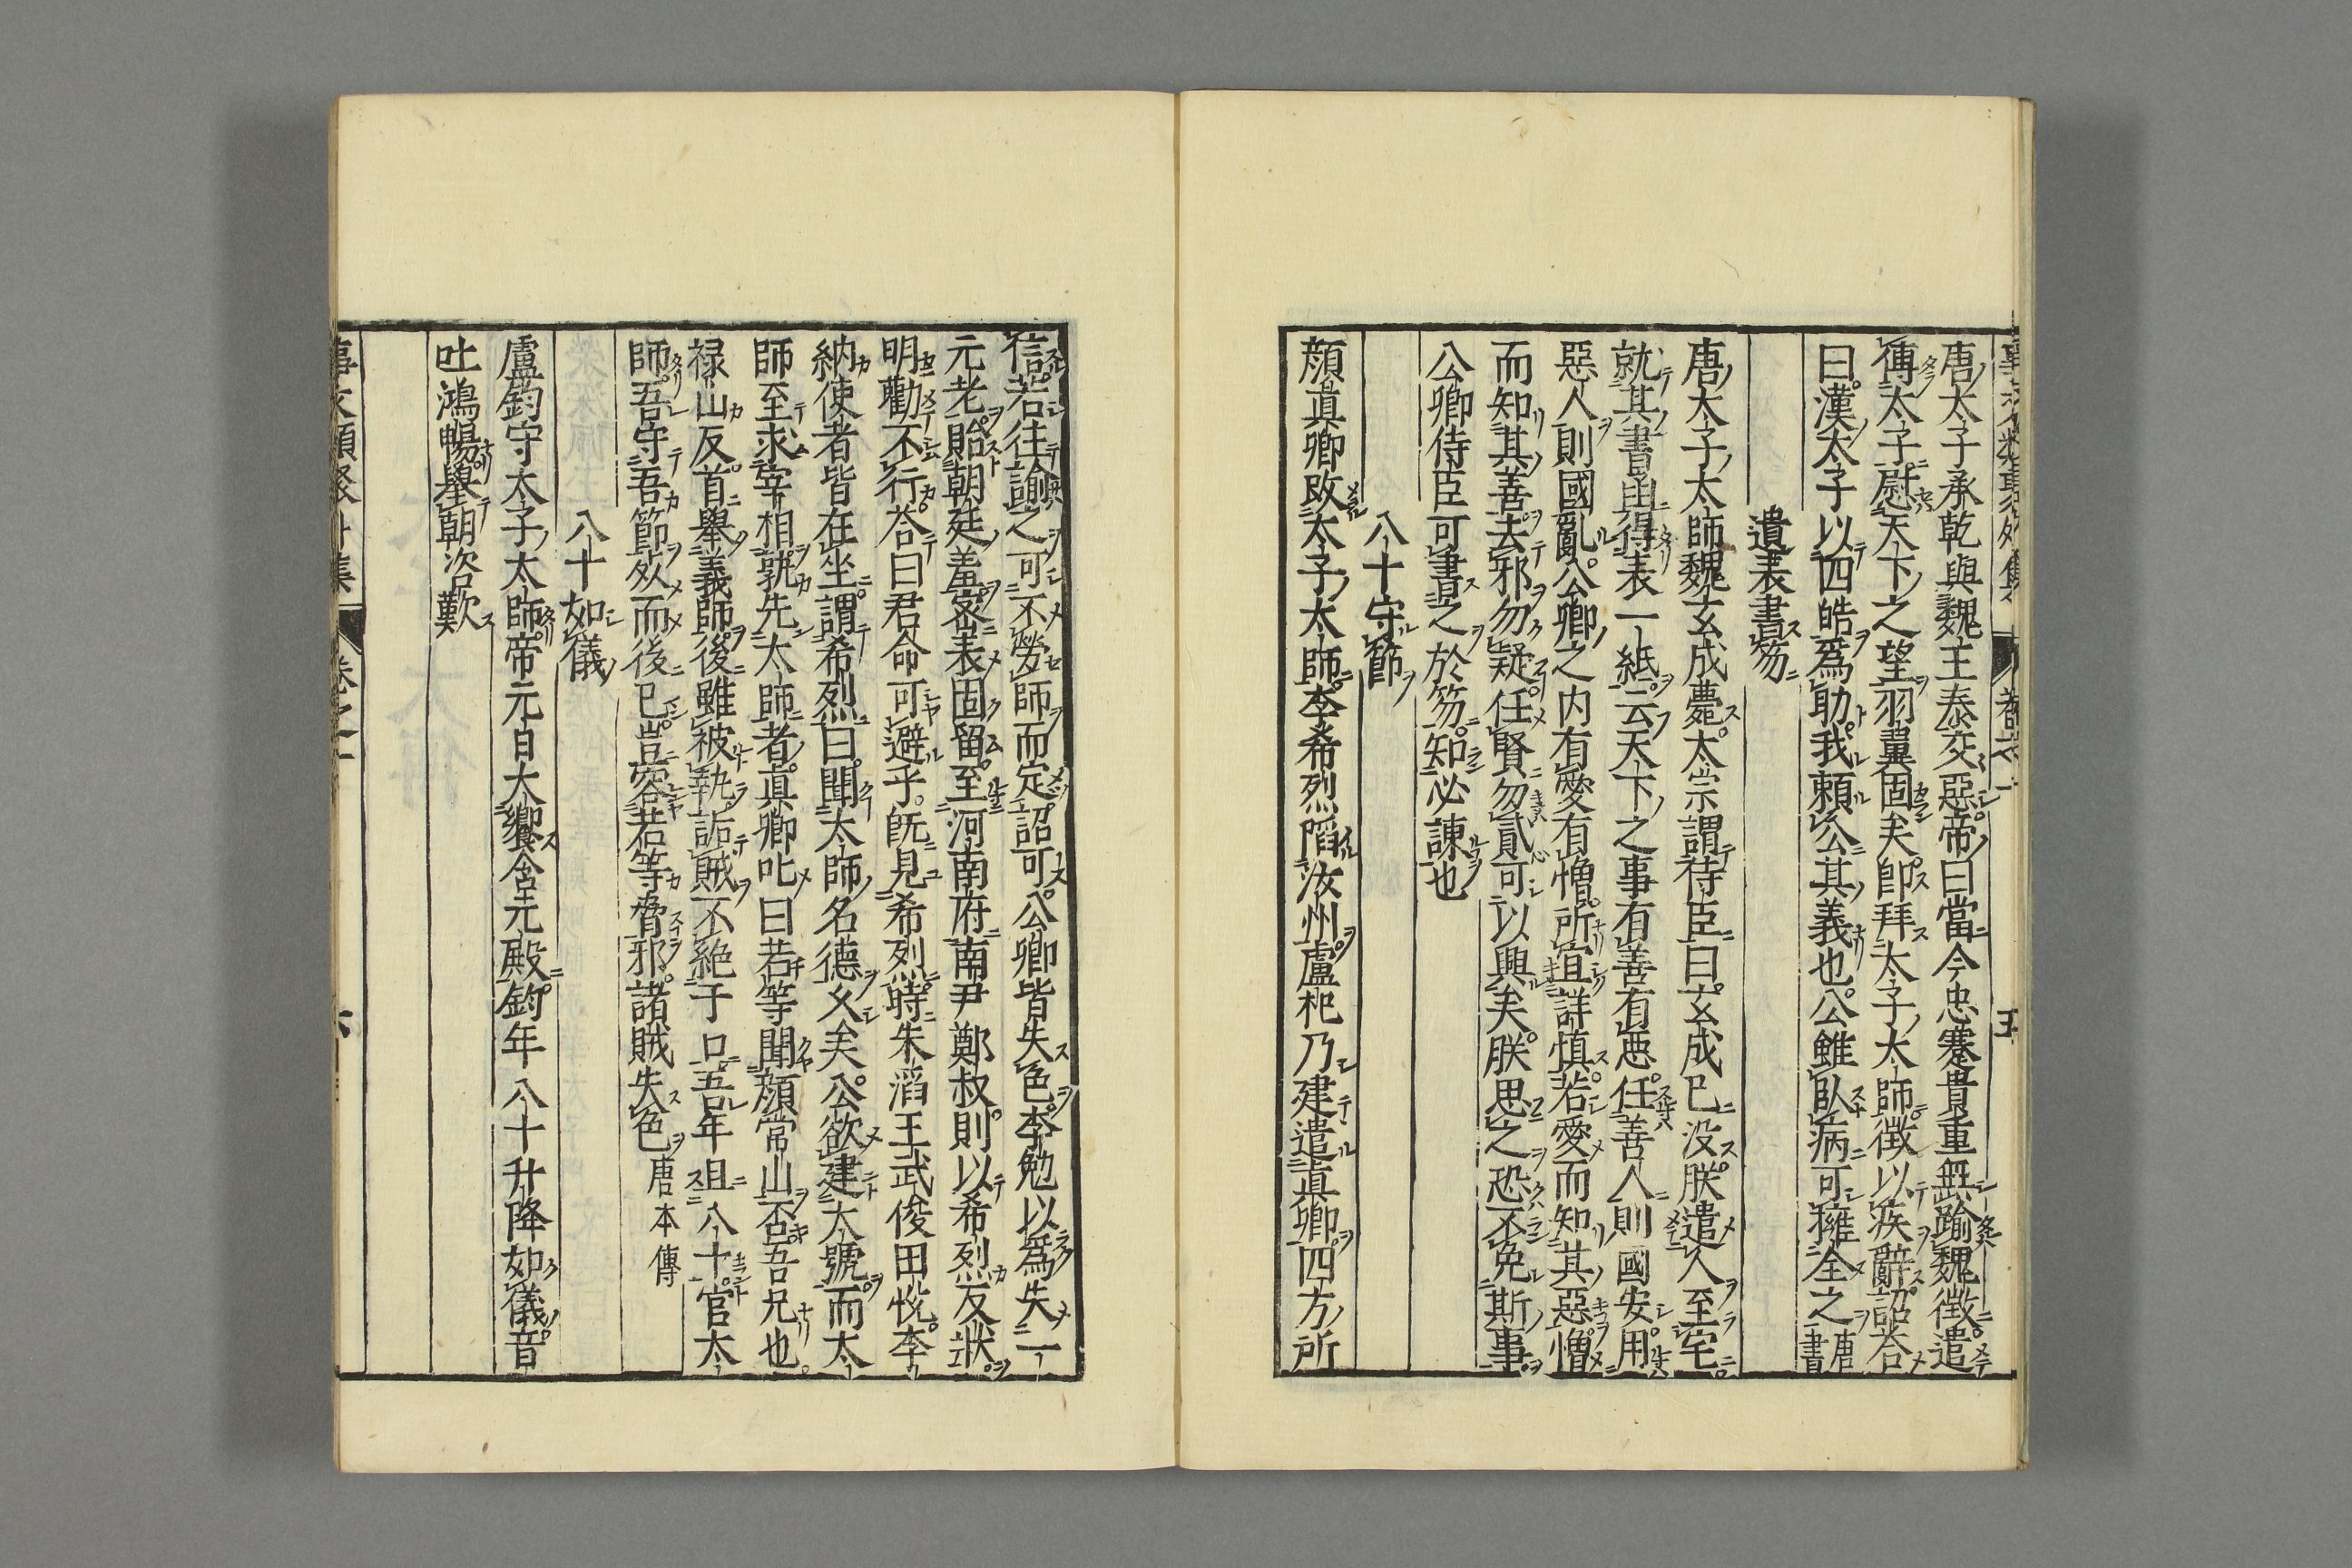 唐太子承乾與魏王泰交惡帝曰當今忠謇貴重無踰魏徵遣
傅太子慰天下之望羽翼固矣卽拜太子太師徵以疾辭詔荅
曰漢太子以四皓爲助我頼公其義也公雖臥病可擁全之唐書
遺表書笏
唐太子太師魏玄成薨太宗謂侍臣曰玄成已没朕遣人至宅
就其書凾得表一紙云天下之事有善有惡任善人則國安用
惡人則國亂公卿之内有愛有憎所宜詳慎若愛而知其惡憎
而知其善去邪勿疑任賢勿貳可以興矣朕思之恐不免斯事
公卿侍臣可書之於笏知必諫也
八十守節
顔眞卿改太子太師李希烈䧟汝州盧杞乃建遣眞卿四方所
信若往諭之可不勞師而定詔可公卿皆失色李勉以爲失一
元老貽朝廷羞密表固留至河南府南尹鄭叔則以希烈反狀
明勸不行荅曰君命可避乎旣見希烈時朱滔王武俊田悦李
納使者皆在坐謂希烈曰聞太師名德久矣公欲建太號而太
師至求宰相孰先太師者眞卿叱曰若等聞顔常山否吾兄也
禄山反首舉義師後雖被執詬賊不絶于口吾年且八十官太
師吾守吾節死而後已豈容若等脅邪諸賊失色唐本傳
八十如儀
盧鈞守太子太師帝元日大饗含元殿鈞年八十升降如儀音
吐鴻暢舉朝咨歎